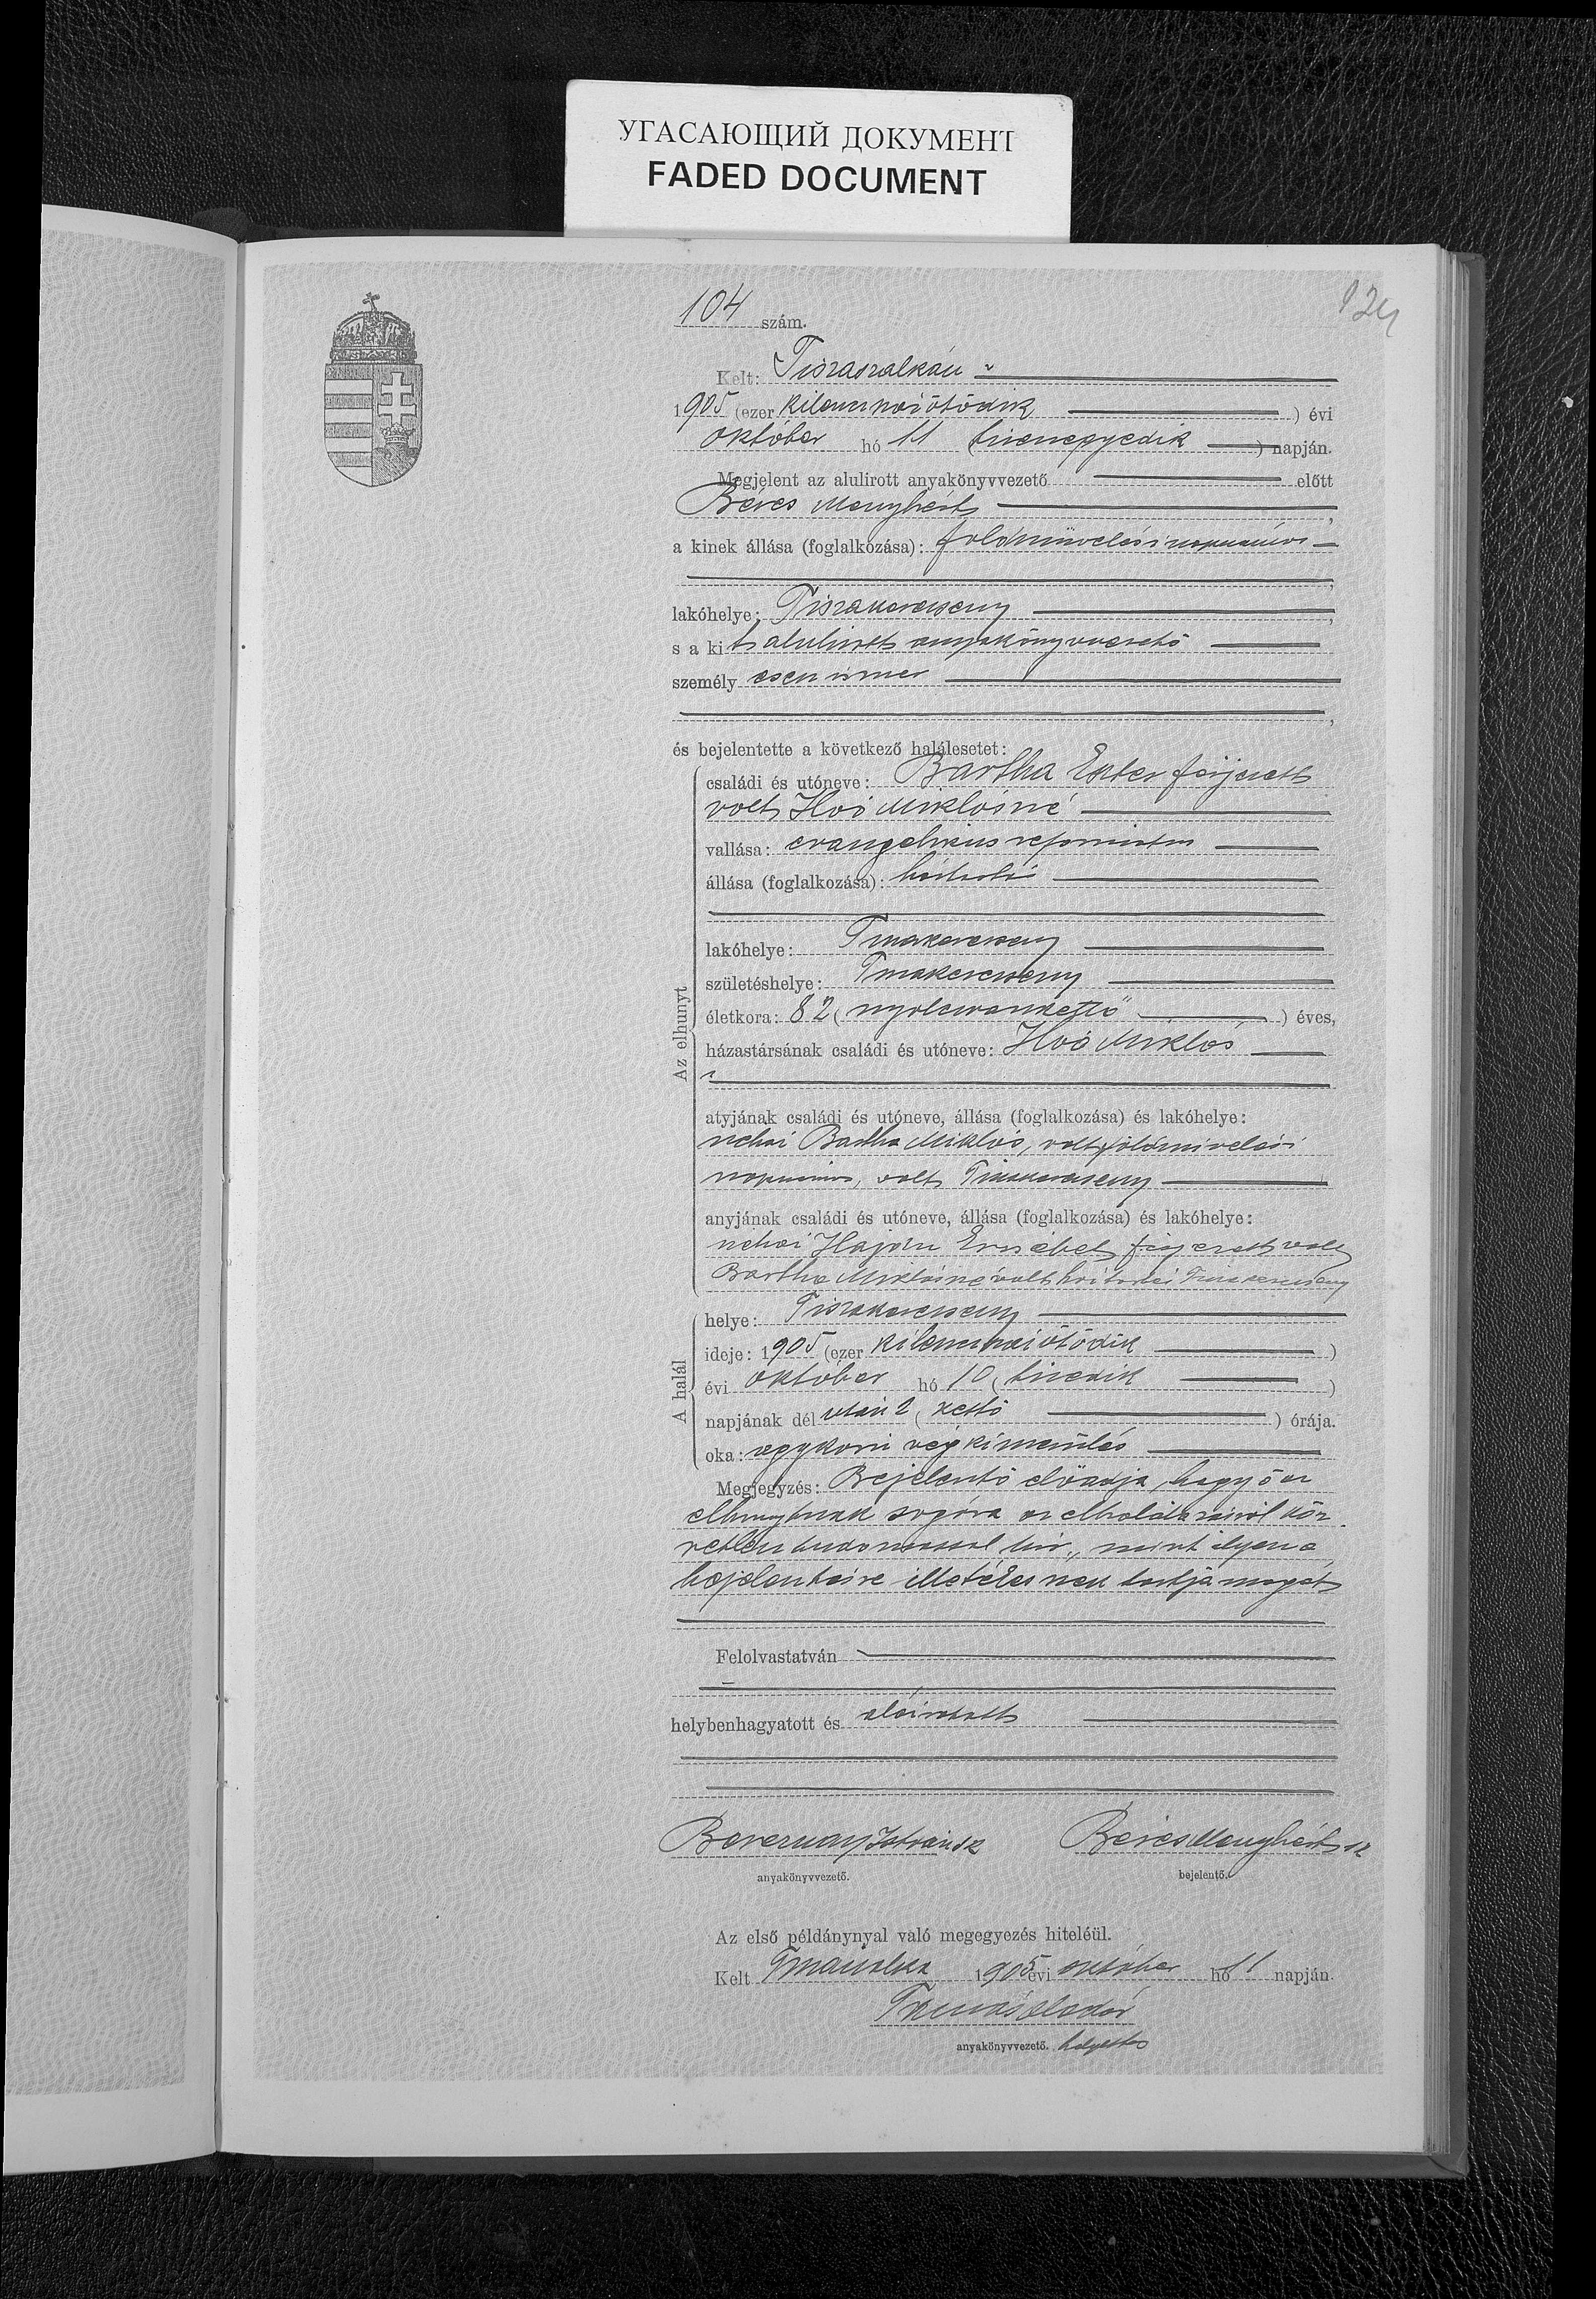 УГАСАЮЩИЙ ДОКУМЕНТ
FADED DOCUMENT
104 szám.
Kelt: Tiszaszalkán
1905 (ezer kilenczszázötödik ) évi
október hó 11 (tizenegyedik ) napján.
Megjelent az alulirott anyakönyvvezető előtt
Béres Menyhért ,
a kinek állása (foglalkozása): földmüvelési napszámos
lakóhelye: Tiszakerecseny ,
s a kit alulirott anyakönyvvezető
személyesen ismer ,
és bejelentette a következő halálesetet:
Az elhunyt
családi és utóneve: Bartha Eszter férjezett
volt Hoó Miklósné
vallása: evangelikus református
állása (foglalkozása): háztartási
lakóhelye: Tiszakerecseny
születéshelye: Tiszakerecseny
életkora: 82 (nyolczvankettő ) éves,
házastársának családi és utóneve: Hoó Miklós
atyjának családi és utóneve, állása (foglalkozása) és lakóhelye:
néhai Bartha Miklós, volt földmivelési
napszámos, volt Tiszakerecseny
anyjának családi és utóneve, állása (foglalkozása) és lakóhelye:
néhai Hajdu Erzsébet férjezett volt
Bartha Miklósné volt háztartási Tiszakerecseny
A halál
helye: Tiszakerecseny
ideje: 1905 (ezer kilenczszázötödik )
évi október hó 10 (tizedik )
napjának dél után 2 (kettő ) órája.
oka: aggkori végkimerülés
Megjegyzés: Bejelentő előadja, hogy ő az
elhunytnak sógora az elhalálozásról köz-
vetlen tudomással bir, mint ilyen a
bejelentésre illetékesnek tartja magát
Felolvastatván
helybenhagyatott és aláiratott
István sk Béres Menyhért sk
anyakönyvvezető. bejelentő.
Az első példánynyal való megegyezés hiteléül.
Kelt Tiszaszalka 1905 évi október hó 11 napján.
Aladár
anyakönyvvezető. helyettes